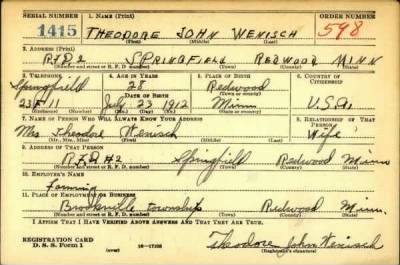 SERIAL NUMBER 1. NAME (Print) ORDER NUMBER
1415 THEODORE JOHN WENISCH 598
(First) (Middle) (Last)
2. ADDRESS (Print)
RFD2 SPRINGFIELD REDWOOD MINN
(Number and street or R. F. D. number) (Town) (County) (State)
3. TELEPHONE 4. AGE IN YEARS 5. PLACE OF BIRTH 6. COUNTRY OF CITIZENSHIP
Springfield 28 Redwood
DATE OF BIRTH
23F11 July 23 1912 Minn U.S.A.
(Exchange) (Number) (Mo.) (Day) (Yr.) (Town or county) (State or country)
7. NAME OF PERSON WHO WILL ALWAYS KNOW YOUR ADDRESS 8. RELATIONSHIP OF THAT PERSON
Mrs Theodore Wenisch Wife
(Mr., Mrs., Miss) (First) (Middle) (Last)
9. ADDRESS OF THAT PERSON
R.F.D #2 Springfield Redwood Minn
(Number and street or R. F. D. number) (Town) (County) (State)
10. EMPLOYER'S NAME
Farming
11. PLACE OF EMPLOYMENT OR BUSINESS
Brookville township Redwood Minn.
(Number and street or R. F. D. number) (Town) (County) (State)
I AFFIRM THAT I HAVE VERIFIED ABOVE ANSWERS AND THAT THEY ARE TRUE.
REGISTRATION CARD
D. S. S. Form 1 (over) 16—17105 Theodore John Wenisch
(Registrant's signature)